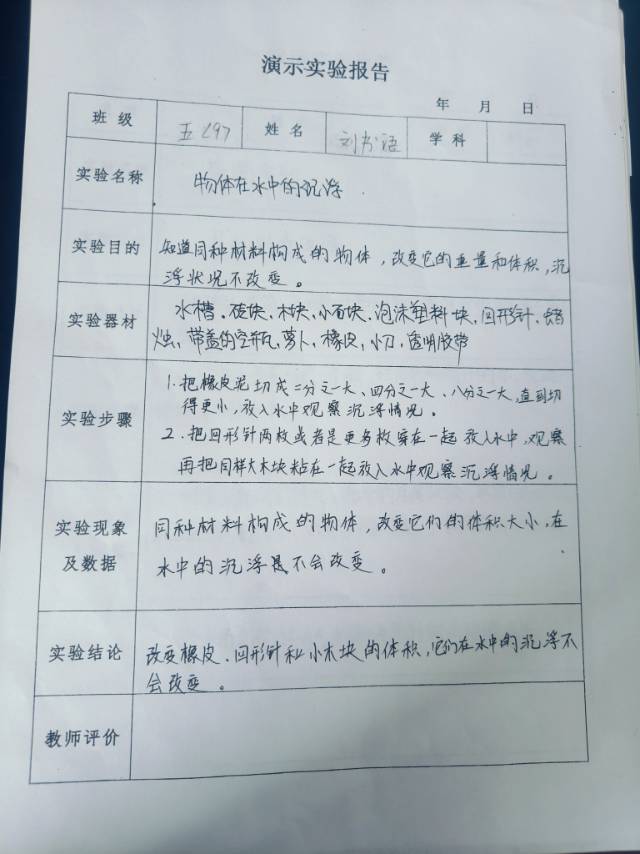 演示实验报告
年 月 日
班级 五297 姓名 刘书语 学科
实验名称 物体在水中的沉浮.
实验目的 知道同种材料构成的物体，改变它的重量和体积，沉
浮状况不改变。
实验器材 水槽、砖块、木块、小石块、泡沫塑料块、回形针、蜡
烛、带盖的空瓶、萝卜、橡皮、小刀、透明胶带
实验步骤 1.把橡皮泥切成二分之一大、四分之一大、八分之一大，直到切
得更小，放入水中观察沉浮情况。
2.把回形针两枚或者是更多枚穿在一起放入水中，观察
再把同样大木块粘在一起放入水中观察沉浮情况。
实验现象及数据 同种材料构成的物体，改变它们的体积大小，在
水中的沉浮是不会改变。
实验结论 改变橡皮、回形针和小木块的体积，它们在水中的沉浮不
会改变。
教师评价